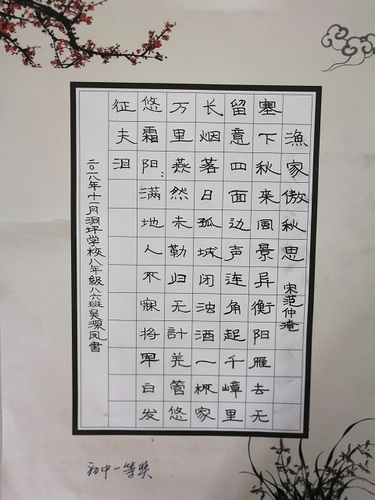 漁家傲秋思 宋范仲淹
塞下秋来风景异衡阳雁去无
留意四面边声连角起千嶂里
长烟落日孤城闭浊酒一杯家
万里燕然未勒归无計羌管悠
悠霜阳满地人不寐将军白发
征夫泪
二〇一八年十一月洞坪学校八年級八六班吴源凤書
初中一等奖